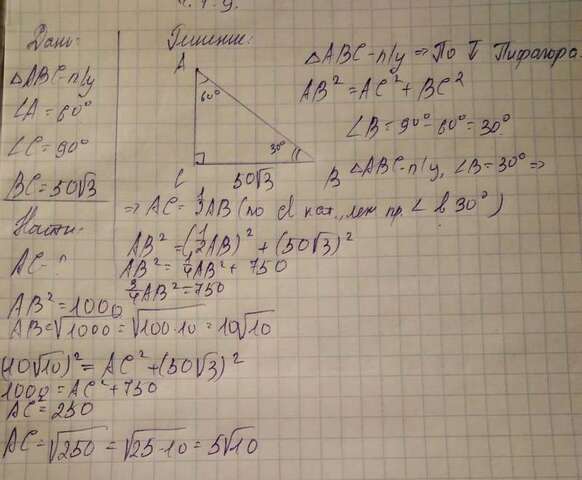 Дано:
△ABC-п/у
∠A=60°
∠C=90°
BC=50√3
Найти:
AC-?
Решение:
A
60°
30°
C
50√3
B
△ABC-п/у ⇒ По Т Пифагора.
AB²=AC²+BC²
∠B=90°-60°=30°
△ABC-п/у, ∠B=30° ⇒
⇒ AC=½AB (по св кат., леж пр. ∠ в 30°)
AB²=(½AB)²+(50√3)²
AB²=¼AB²+750
¾AB²=750
AB²=1000
AB=√1000=√100·10=10√10
(10√10)²=AC²+(50√3)²
1000=AC²+750
AC²=250
AC=√250=√25·10=5√10